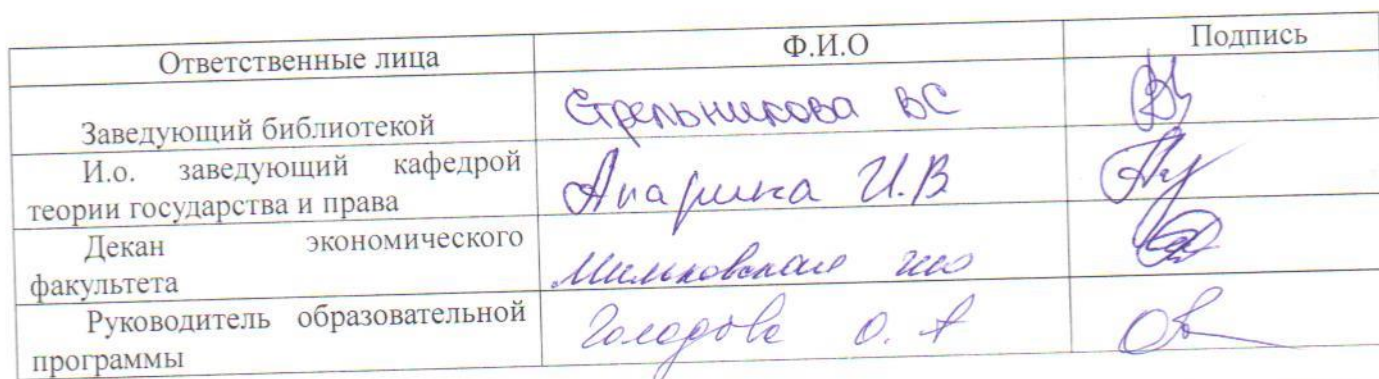 Ответственные лица Ф.И.О Подпись
Заведующий библиотекой Стрельникова ВС
И.о. заведующий кафедрой
теории государства и права Апарина И.В
Декан экономического
факультета Мильковская
Руководитель образовательной
программы О. А